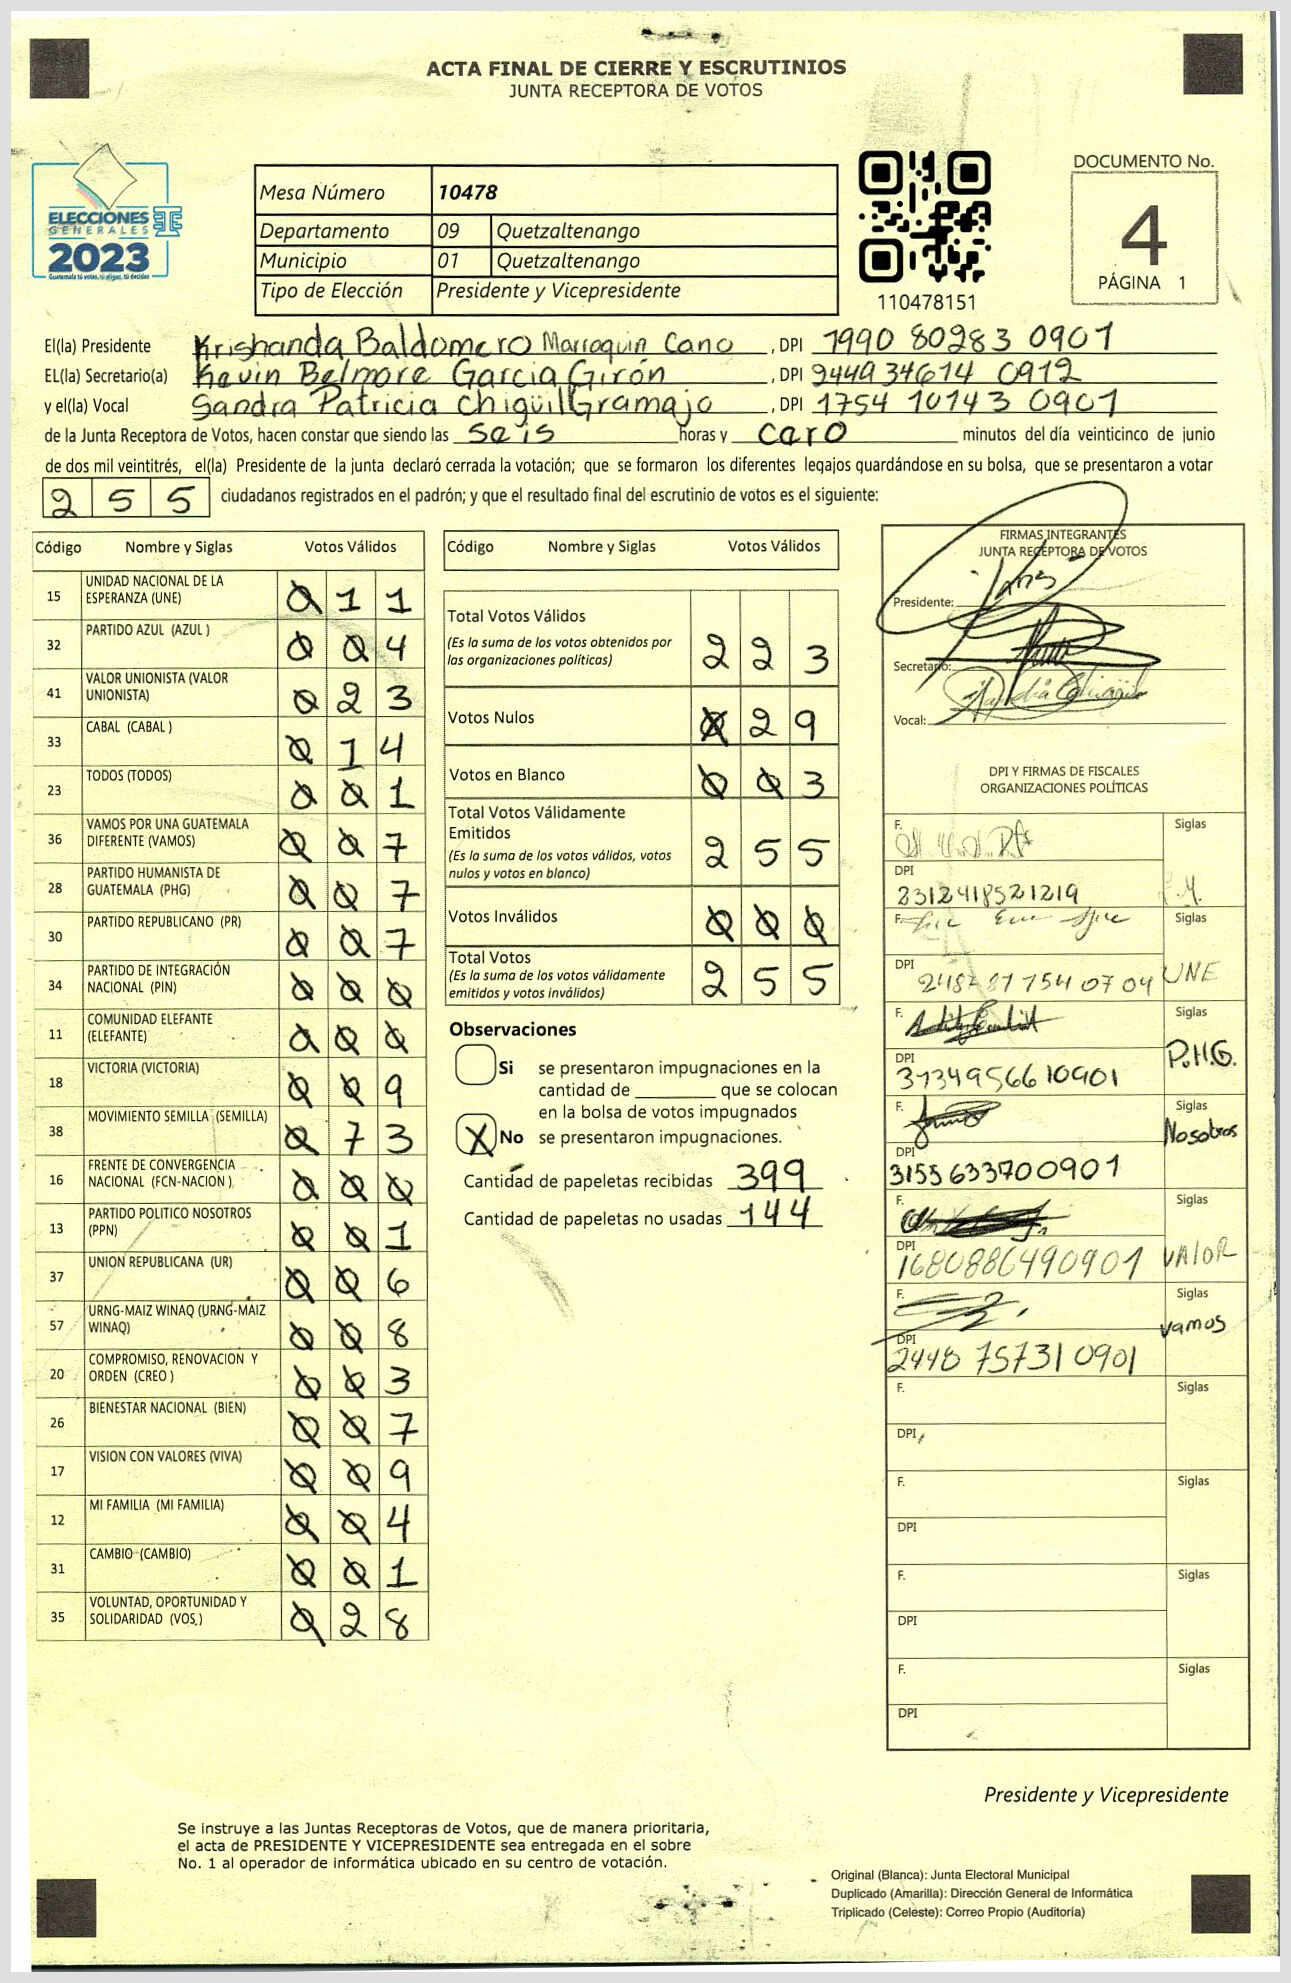 ACTA FINAL DE CIERRE Y ESCRUTINIOS
JUNTA RECEPTORA DE VOTOS
ELECCIONES
GENERALES
2023
Guatemala tú votas, tú eliges, tú decides
Mesa Número 10478
Departamento 09 Quetzaltenango
Municipio 01 Quetzaltenango
Tipo de Elección Presidente y Vicepresidente
110478151
DOCUMENTO No.
4
PÁGINA 1
El(la) Presidente Krishanda Baldomero Marroquin Cano , DPI 1990 80283 0901
EL(la) Secretario(a) Kevin Belmore Garcia Girón , DPI 2449 34614 0912
y el(la) Vocal Sandra Patricia Chigüil Gramajo , DPI 1754 10143 0901
de la Junta Receptora de Votos, hacen constar que siendo las seis horas y cero minutos del día veinticinco de junio
de dos mil veintitrés, el(la) Presidente de la junta declaró cerrada la votación; que se formaron los diferentes legajos guardándose en su bolsa, que se presentaron a votar
2 5 5 ciudadanos registrados en el padrón; y que el resultado final del escrutinio de votos es el siguiente:
Código Nombre y Siglas Votos Válidos
15 UNIDAD NACIONAL DE LA ESPERANZA (UNE) 0 1 1
32 PARTIDO AZUL (AZUL ) 0 0 4
41 VALOR UNIONISTA (VALOR UNIONISTA) 0 2 3
33 CABAL (CABAL ) 0 1 4
23 TODOS (TODOS) 0 0 1
36 VAMOS POR UNA GUATEMALA DIFERENTE (VAMOS) 0 0 7
28 PARTIDO HUMANISTA DE GUATEMALA (PHG) 0 0 7
30 PARTIDO REPUBLICANO (PR) 0 0 7
34 PARTIDO DE INTEGRACIÓN NACIONAL (PIN) 0 0 0
11 COMUNIDAD ELEFANTE (ELEFANTE) 0 0 0
18 VICTORIA (VICTORIA) 0 0 9
38 MOVIMIENTO SEMILLA (SEMILLA) 0 7 3
16 FRENTE DE CONVERGENCIA NACIONAL (FCN-NACION ) 0 0 0
13 PARTIDO POLITICO NOSOTROS (PPN) 0 0 1
37 UNION REPUBLICANA (UR) 0 0 6
57 URNG-MAIZ WINAQ (URNG-MAIZ WINAQ) 0 0 8
20 COMPROMISO, RENOVACION Y ORDEN (CREO ) 0 0 3
26 BIENESTAR NACIONAL (BIEN) 0 0 7
17 VISION CON VALORES (VIVA) 0 0 9
12 MI FAMILIA (MI FAMILIA) 0 0 4
31 CAMBIO (CAMBIO) 0 0 1
35 VOLUNTAD, OPORTUNIDAD Y SOLIDARIDAD (VOS.) 0 2 8
Código Nombre y Siglas Votos Válidos
Total Votos Válidos
(Es la suma de los votos obtenidos por
las organizaciones políticas) 2 2 3
Votos Nulos 0 2 9
Votos en Blanco 0 0 3
Total Votos Válidamente
Emitidos
(Es la suma de los votos válidos, votos
nulos y votos en blanco) 2 5 5
Votos Inválidos 0 0 0
Total Votos
(Es la suma de los votos válidamente
emitidos y votos inválidos) 2 5 5
Observaciones
Si se presentaron impugnaciones en la
cantidad de ________ que se colocan
en la bolsa de votos impugnados
X No se presentaron impugnaciones.
Cantidad de papeletas recibidas 399
Cantidad de papeletas no usadas 144
FIRMAS INTEGRANTES
JUNTA RECEPTORA DE VOTOS
Presidente:
Secretario:
Vocal:
DPI Y FIRMAS DE FISCALES
ORGANIZACIONES POLÍTICAS
F. Siglas
DPI 2312418521219
F. Siglas
DPI 2487 87 754 07 04 UNE
F. Siglas
DPI 3734956610901 P.H.G.
F. Siglas
DPI 3155633700901 Nosotros
F. Siglas
DPI 1680886490901 VALOR
F. Siglas
DPI 2448 75731 0901 vamos
F. Siglas
DPI
F. Siglas
DPI
F. Siglas
DPI
F. Siglas
DPI
Presidente y Vicepresidente
Se instruye a las Juntas Receptoras de Votos, que de manera prioritaria,
el acta de PRESIDENTE Y VICEPRESIDENTE sea entregada en el sobre
No. 1 al operador de informática ubicado en su centro de votación.
Original (Blanca): Junta Electoral Municipal
Duplicado (Amarilla): Dirección General de Informática
Triplicado (Celeste): Correo Propio (Auditoría)